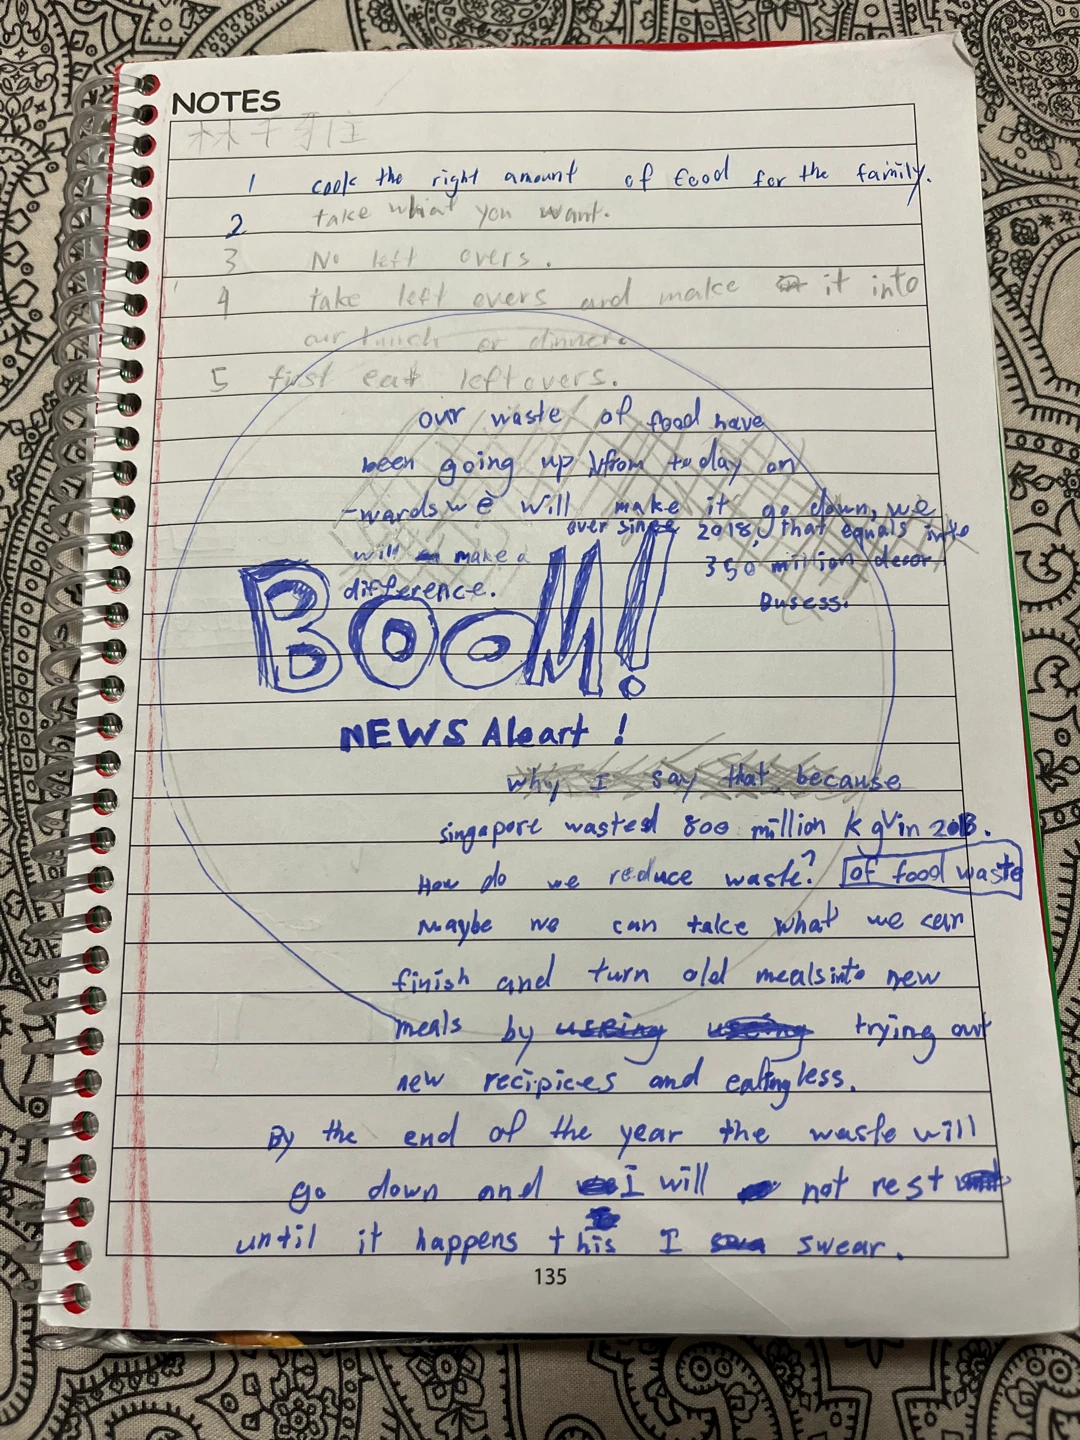 NOTES
1 cook the right amount of food for the family.
2 take what you want.
3 No left overs.
4 take left overs and make it into
our lunch or dinner.
5 first eat leftovers.
our waste of food have
been going up from today on
-wards we will make it go down, we
ever since 2018, that equals into
will make a
350 million decor
difference.
Dusess.
BOOM!
NEWS Aleart !
Why I say that because
singapore wasted 800 million kg in 2018.
How do we reduce waste? of food waste
Maybe we can take what we can
finish and turn old meals into new
meals by useing useing trying out
new recipices and eating less.
By the end of the year the waste will
go down and I will not rest
until it happens this I swear.
135